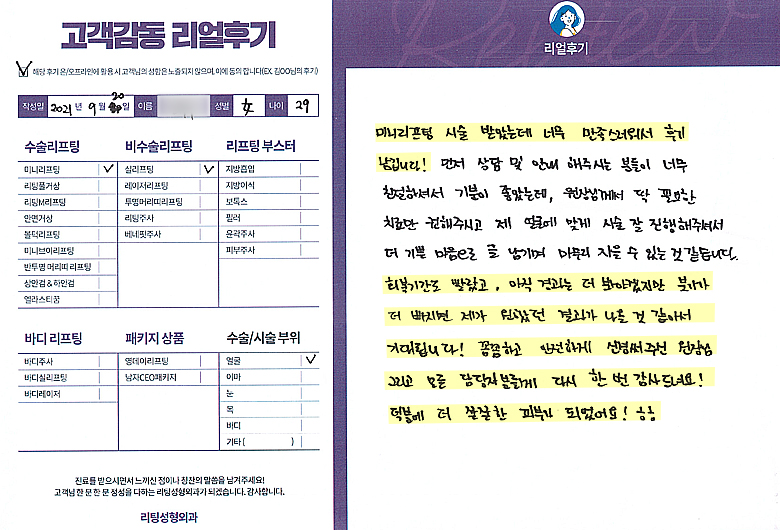 고객감동 리얼후기
해당 후기 온/오프라인에 활용 시 고객님의 성함은 노출되지 않으며, 이에 동의 합니다(EX. 김OO님의 후기)
작성일 2021 년 9 월 20 일 이름 성별 女 나이 29
수술리프팅
미니리프팅
리팅풀거상
리팅M리프팅
안면거상
볼턱리프팅
미니브이리프팅
반투명 머리띠 리프팅
상안검 & 하안검
엘라스티꿈
비수술리프팅
실리프팅
레이저리프팅
투명머리띠리프팅
리팅주사
베네핏주사
리프팅 부스터
지방흡입
지방이식
보톡스
필러
윤곽주사
피부주사
바디 리프팅
바디주사
바디실리프팅
바디레이저
패키지 상품
영데이리프팅
남자CEO패키지
수술/시술 부위
얼굴
이마
눈
목
바디
기타 ( )
진료를 받으시면서 느끼신 점이나 칭찬의 말씀을 남겨주세요!
고객님 한 분 한 분 정성을 다하는 리팅성형외과가 되겠습니다. 감사합니다.
리팅성형외과
Review
리얼후기
미니리프팅 시술 받았는데 너무 만족스러워서 후기
남깁니다! 먼저 상담 및 안내 해주시는 분들이 너무
친절하셔서 기분이 좋았는데, 원장님께서 딱 필요한
치료만 권해주시고 제 얼굴에 맞게 시술 잘 진행해주셔서
더 기쁜 마음으로 글 남기며 마무리 지을 수 있는 것 같습니다.
회복기간도 빨랐고, 아직 경과는 더 봐야겠지만 붓기가
더 빠지면 제가 원했던 결과가 나올 것 같아서
기대됩니다! 꼼꼼하고 안전하게 신경써주신 원장님
그리고 모든 담당자분들께 다시 한 번 감사드려요!
덕분에 더 쫀쫀한 피부가 되었어요! ㅎㅎ